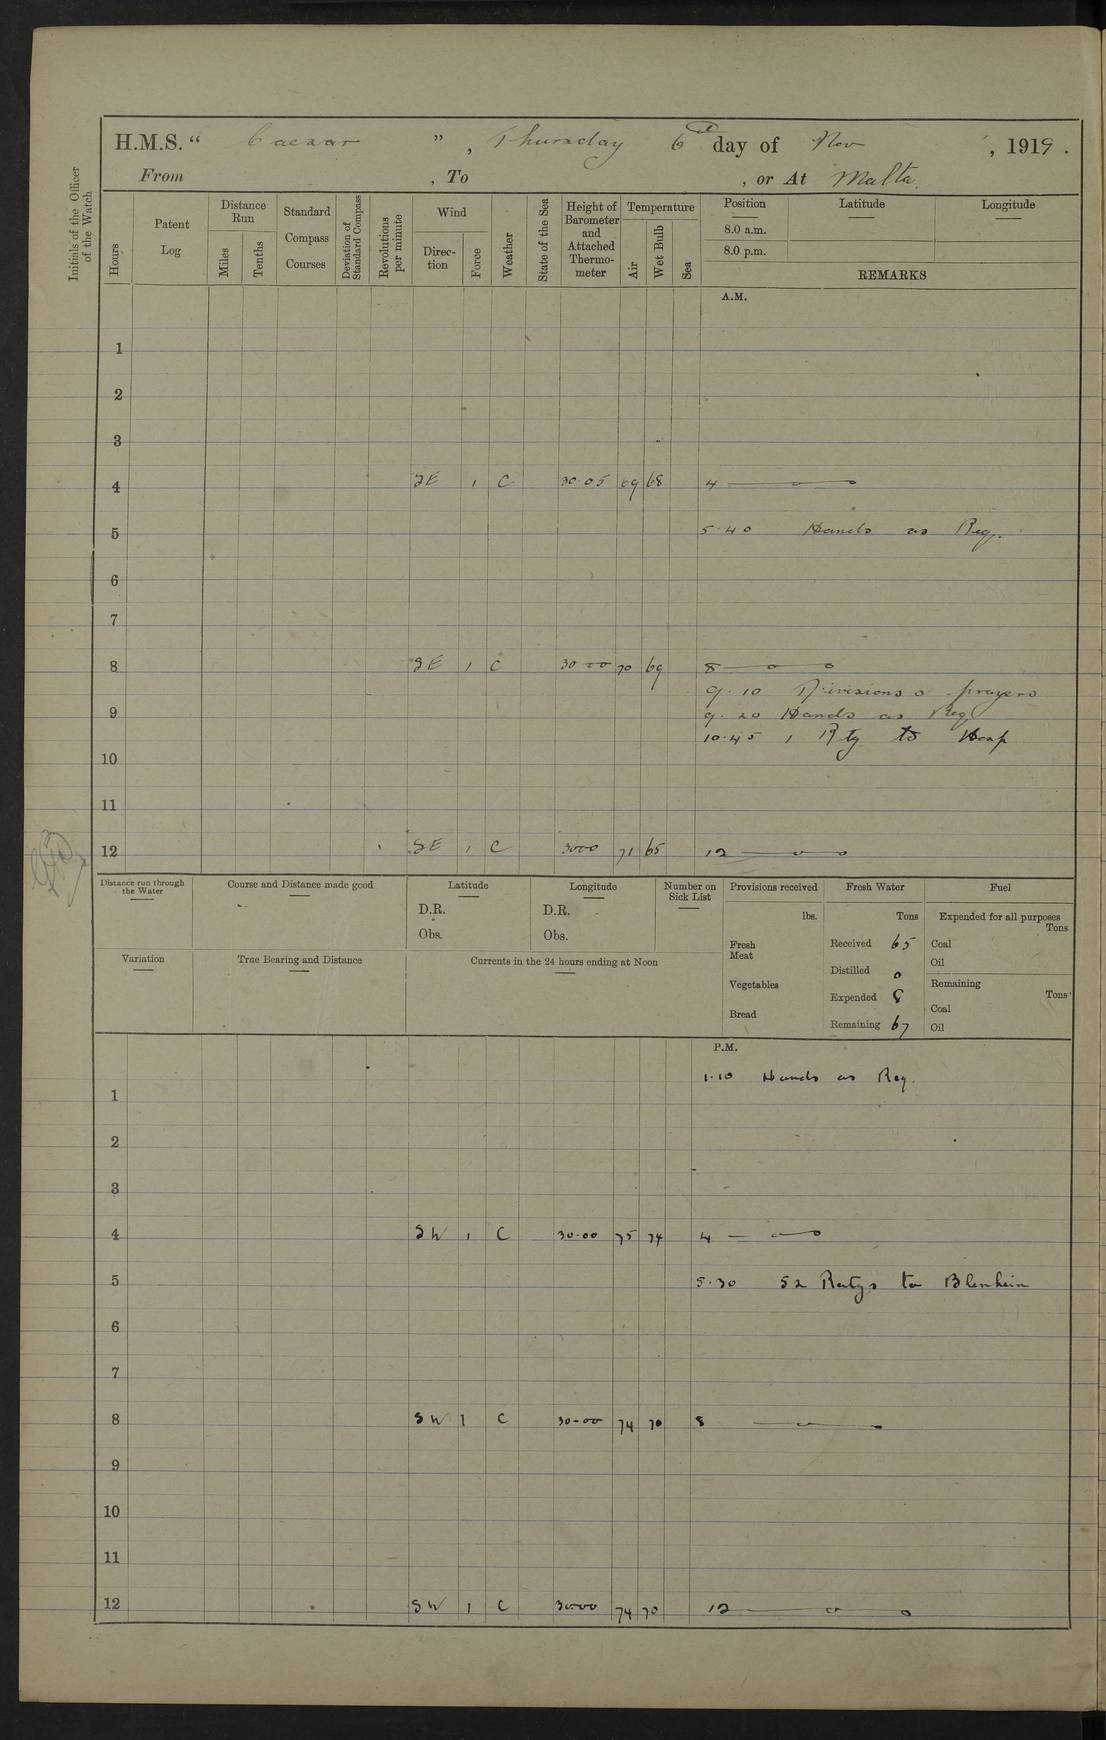 H.M.S. “ Caesar ” , Thursday 6th day of Nov , 1919 .
From , To , or At Malta
Initials of the Officer of the Watch
Hours
Patent Log
Distance Run
Miles
Tenths
Standard Compass Courses
Deviation of Standard Compass
Revolutions per minute
Wind
Direc-tion
Force
Weather
State of the Sea
Height of Barometer and Attached Thermo-meter
Temperature
Air
Wet Bulb
Sea
Position Latitude Longitude
8.0 a.m.
8.0 p.m.
REMARKS
A.M.
1
2
3
4 SE 1 C 30.05 69 68 4
5 5.40 Hands as Req.
6
7
8 SE 1 C 30.00 70 69 8
9.10 Divisions & prayers
9 9.20 Hands as Req
10.45 1 Rtg to Hosp
10
11
12 SE 1 C 3000 71 65 12
Distance run through the Water
Course and Distance made good
Latitude
D.R.
Obs.
Longitude
D.R.
Obs.
Number on Sick List
Provisions received
lbs.
Fresh Meat
Vegetables
Bread
Fresh Water
Tons
Received 65
Distilled 0
Expended 8
Remaining 67
Fuel
Expended for all purposes
Tons
Coal
Oil
Remaining
Tons
Coal
Oil
Variation
True Bearing and Distance
Currents in the 24 hours ending at Noon
P.M.
1.10 Hands as Req.
1
2
3
4 SW 1 C 30.00 75 74 4
5 5.30 52 Ratgs to Blenheim
6
7
8 SW 1 C 30-00 74 70 8
9
10
11
12 SW 1 C 30.00 74 70 12